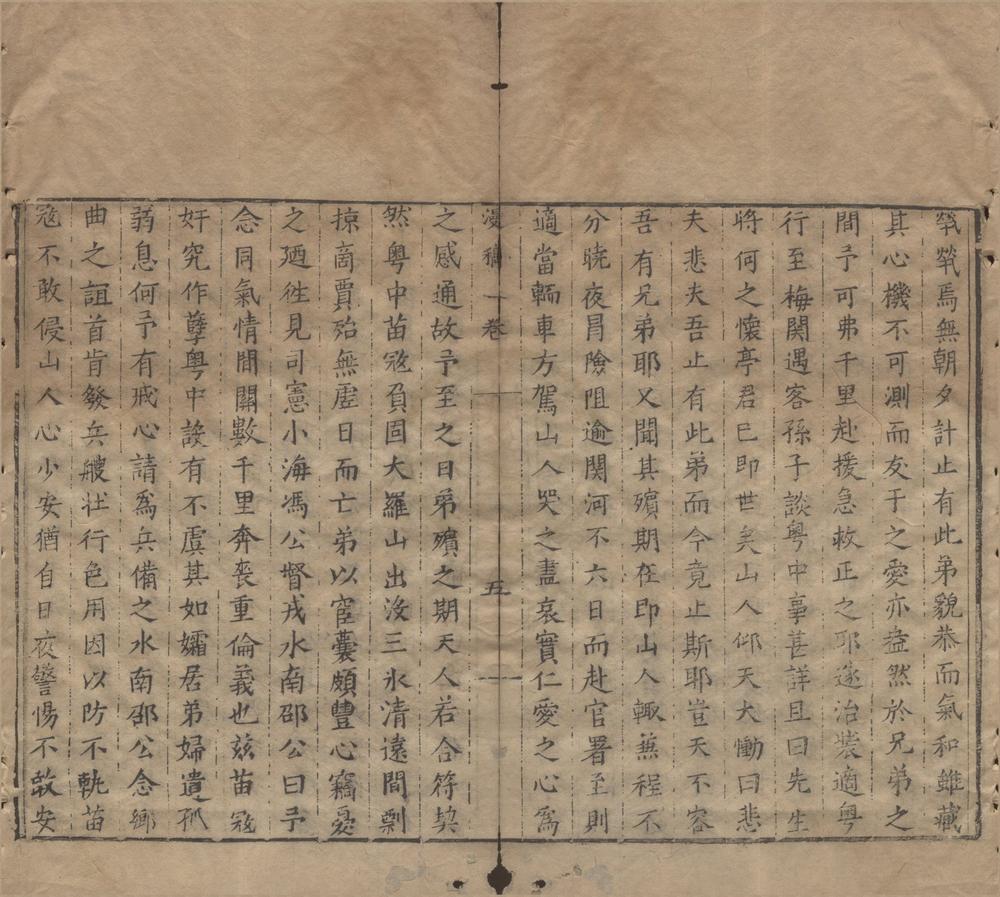 煢煢焉無朝夕計止有此弟貌恭而氣和雖藏
其心機不可測而友于之愛亦盎然於兄弟之
間予可弗千里赴援急救正之耶遂治裝適粤
行至梅関遇客孫子談粤中事甚詳且曰先生
將何之懐亭君已即世矣山人仰天大慟曰悲
夫悲夫吾止有此弟而今竟止斯耶豈天不容
吾有兄弟耶又聞其殯期在即山人輙蒹程不
分曉夜冐險阻逾関河不六日而赴官署至則
適當輀車方駕山人哭之盡哀實仁愛之心爲
漫稿 一卷 五
之感通故予至之日弟殯之期天人若合符契
然粤中苗冦負固大羅山出沒三氷清遠間剽
掠啇賈殆無虚日而亡弟以宦囊頗豐心竊憂
之廼徃見司憲小海馮公督戎水南邵公曰予
念同氣情間關數千里奔喪重倫義也玆苗冦
奸宄作孽粤中設有不虞其如孀居弟婦遺孤
弱息何予有戒心請爲兵備之水南邵公念鄉
曲之誼首肯發兵艘壯行色用因以防不軌苗
冦不敢侵山人心少安猶自日夜警惕不敢安